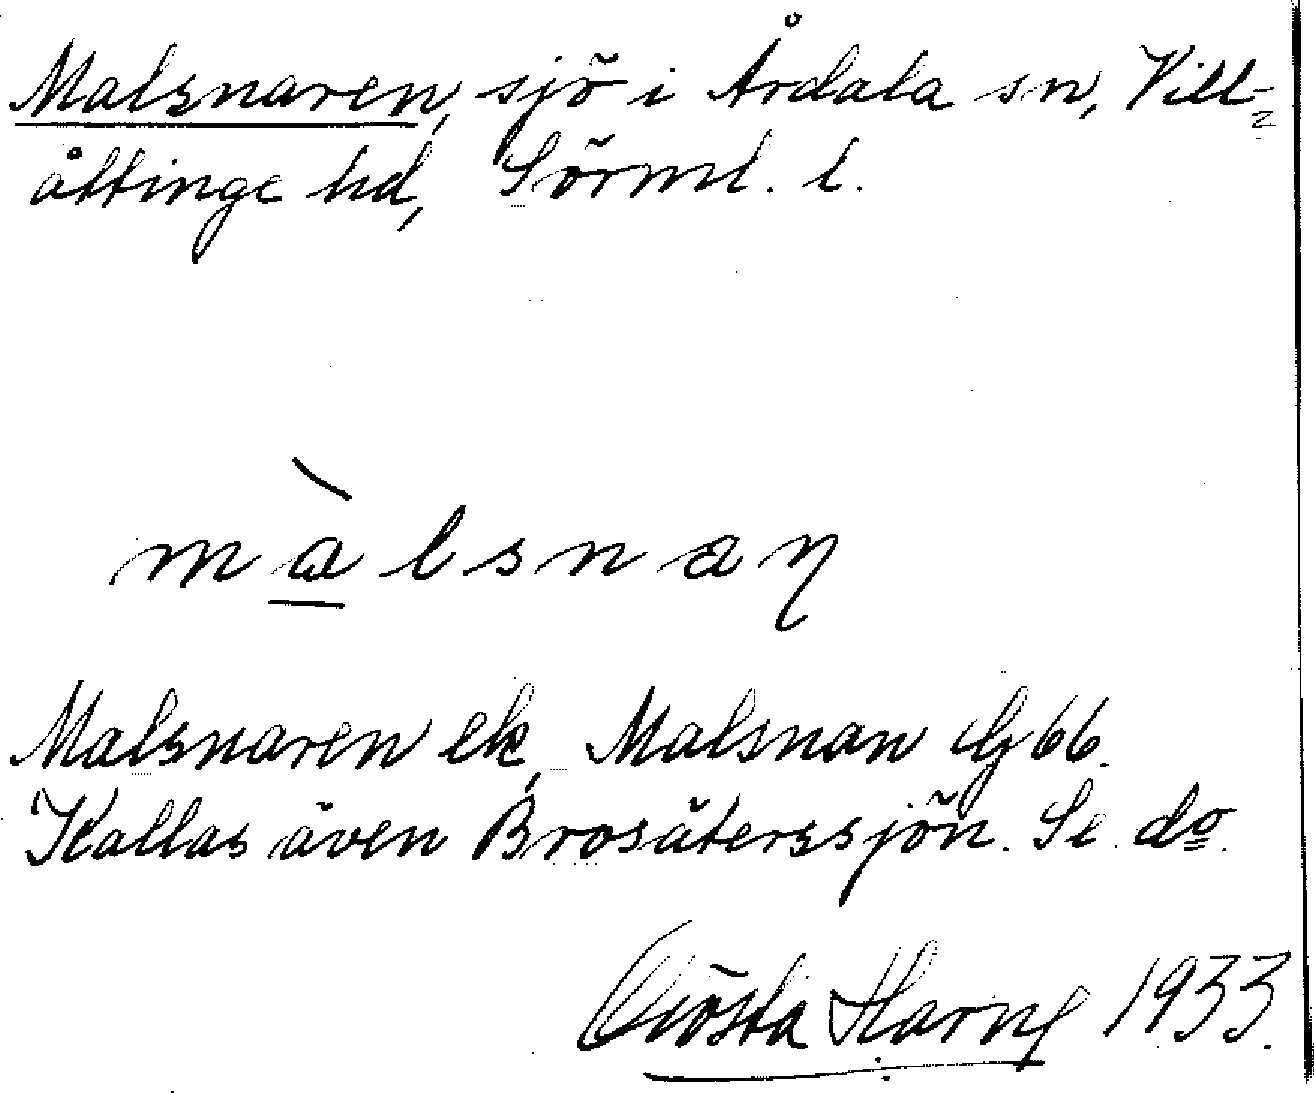 Malsnaren, sjö i Årdala sn, Vill-
åttinge hd, Sörml. l.
màlsnaŋ
Malsnaren ek, Malsnan Gj 66.
Kallas även Brosäterssjön. Se do.
Gösta Harng 1933.